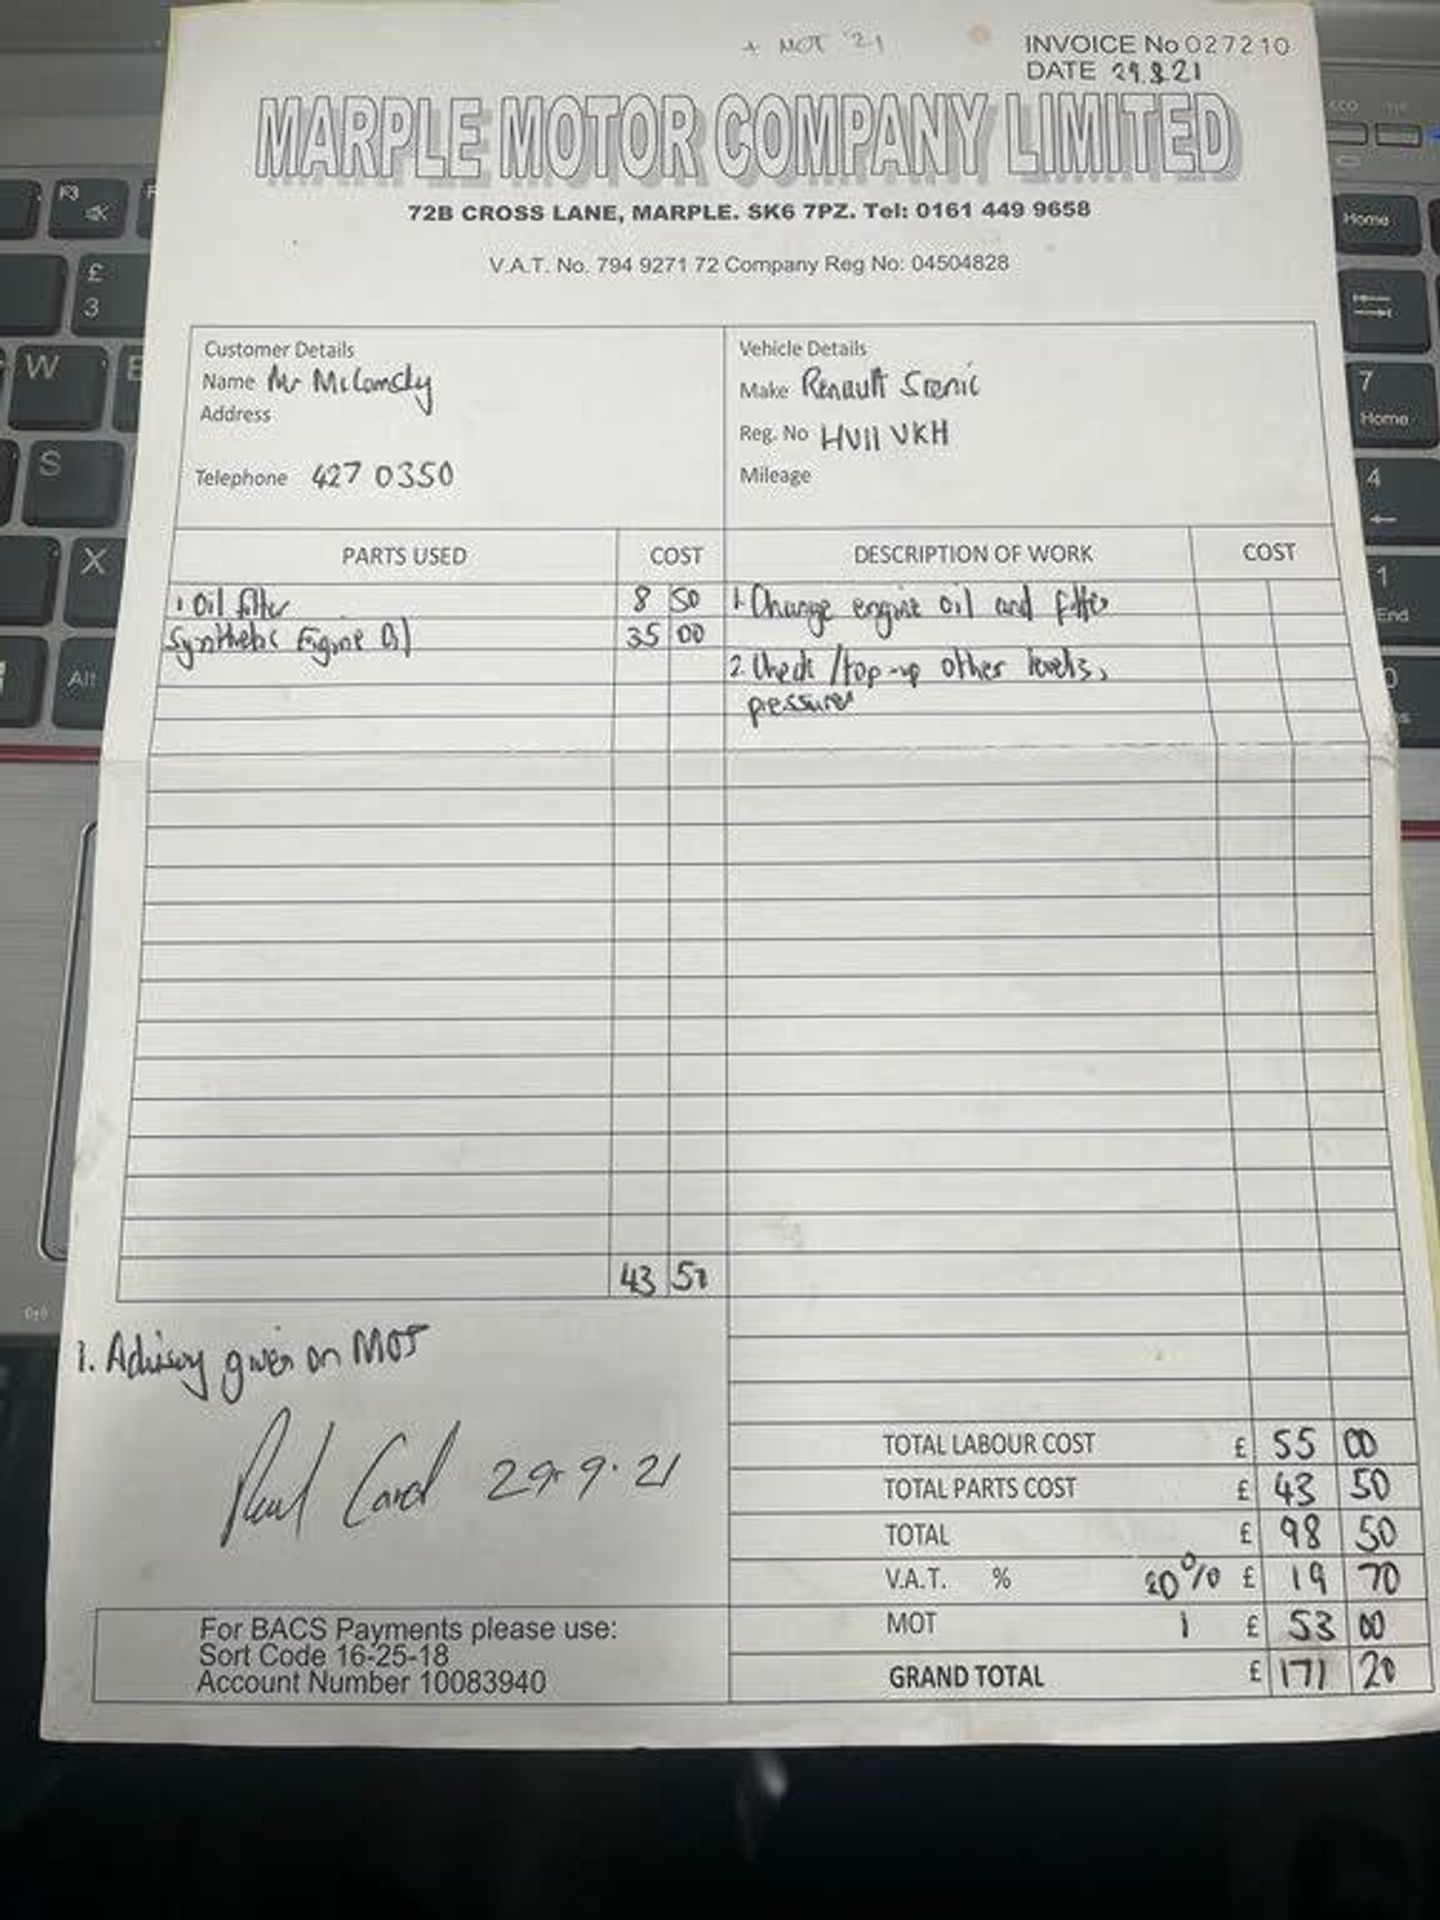 + MOT '21
INVOICE No 027210
DATE 29.9.21
MARPLE MOTOR COMPANY LIMITED
72B CROSS LANE, MARPLE. SK6 7PZ. Tel: 0161 449 9658
V.A.T. No. 794 9271 72 Company Reg No: 04504828
Customer Details
Name Mr
Address
Telephone 427 0350
Vehicle Details
Make Renault Scenic
Reg. No HV11 VKH
Mileage
PARTS USED COST DESCRIPTION OF WORK COST
1 Oil filter 8 50 1. Change engine oil and filter
Synthetic Engine Oil 35 00
2. Check / top-up other levels,
pressures
43 50
1. Advisory given on MOT
29.9.21
TOTAL LABOUR COST £ 55 00
TOTAL PARTS COST £ 43 50
TOTAL £ 98 50
V.A.T. % 20% £ 19 70
MOT 1 £ 53 00
GRAND TOTAL £ 171 20
For BACS Payments please use:
Sort Code 16-25-18
Account Number 10083940
F3
£
3
W
E
S
X
Alt
Home
7
Home
4
1
End